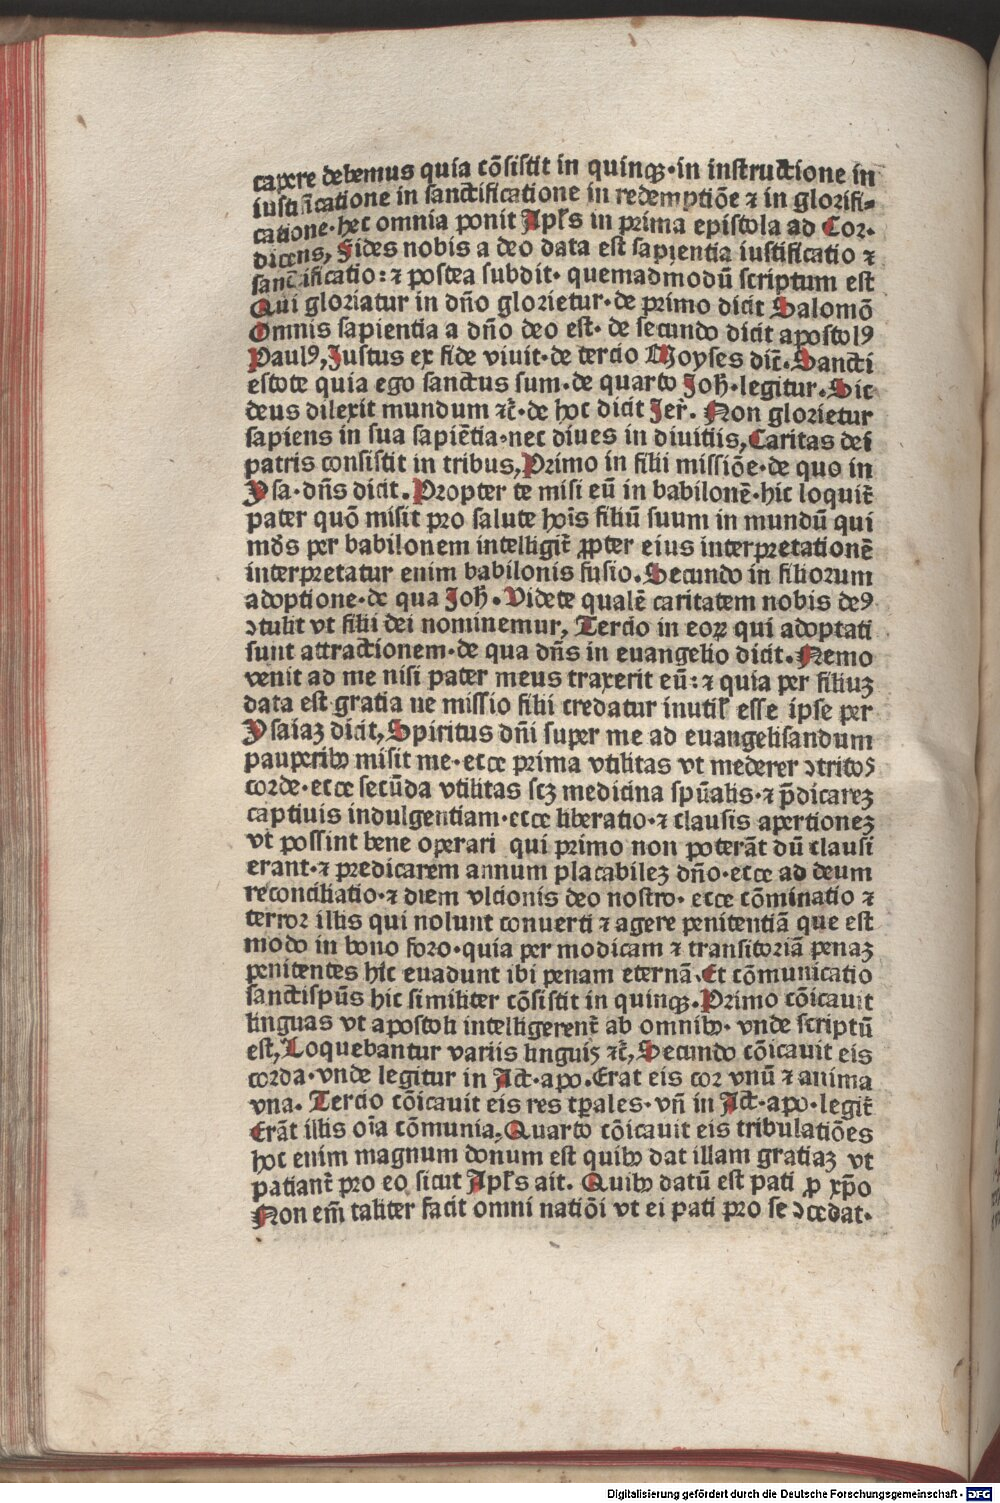 capere debemus quia cōsistit in quinqꝫ·in instructione in
iustificatione in sanctificatione in redemptiōe ⁊ in glorifi⸗
catione·hec omnia ponit Apl's in prima epistola ad Cor·
dicens, Fides nobis a deo data est sapientia iustificatio ⁊
sanctificatio: ⁊ postea subdit· quemadmodū scriptum est
Qui gloriatur in dño glorietur·de primo dicit Salomō
Omnis sapientia a dño deo est· de secundo dicit apostolꝰ
Paulꝰ, Justus ex fide viuit·de tercio Moyses dic̄·Sancti
estote quia ego sanctus sum·de quarto Joh̄·legitur·Sic
deus dilexit mundum ⁊c̄·de hoc dicit Jer̄. Non glorietur
sapiens in sua sapiētia·nec diues in diuitiis, Caritas dei
patris consistit in tribus, Primo in filii missiōe·de quo in
Ysa·dn̄s dicit. Propter te misi eū in babilonē·hic loquit̄
pater quō misit pro salute hoīs filiū suum in mundū qui
mōs per babilonem intelligit̄ ꝓpter eius interpretationē
interpretatur enim babilonis fusio. Secundo in filiorum
adoptione·de qua Joh̄. Videte qualē caritatem nobis deꝰ
ꝯtulit vt filii dei nominemur, Tercio in eoꝝ qui adoptati
sunt attractionem·de qua dn̄s in euangelio dicit. Nemo
venit ad me nisi pater meus traxerit eū: ⁊ quia per filiuꝫ
data est gratia ne missio filii credatur inutil' esse ipse per
Ysaiaꝫ dicit, Spiritus dn̄i super me ad euangelisandum
pauperibꝫ misit me·ecce prima vtilitas vt mederer ꝯtritos
corde·ecce secūda vtilitas scꝫ medicina spūalis·⁊ p̄dicareꝫ
captiuis indulgentiam·ecce liberatio·⁊ clausis apertioneꝫ
vt possint bene operari qui primo non poterāt dū clausi
erant·⁊ predicarem annum placabileꝫ dño·ecce ad deum
reconciliatio·⁊ diem vlcionis deo nostro· ecce cōminatio ⁊
terror illis qui nolunt conuerti ⁊ agere penitentiā que est
modo in bono foro·quia per modicam ⁊ transitoriā penaꝫ
penitentes hic euadunt ibi penam eternā. Et cōmunicatio
sanctispūs hic similiter cōsistit in quinqꝫ. Primo cōicauit
linguas vt apostoli intelligerent̄ ab omnibꝫ· vnde scriptū
est, Loquebantur variis linguis ⁊c̄, Secundo cōicauit eis
corda·vnde legitur in Act·apo. Erat eis cor vnū ⁊ anima
vna. Tercio cōicauit eis res tp̄ales·vn̄ in Act·apo·legit̄
Erāt illis oīa cōmunia, Quarto cōicauit eis tribulatiōes
hoc enim magnum donum est quibꝫ dat illam gratiaꝫ vt
patiant̄ pro eo sicut Apl's ait. Quibꝫ datū est pati ꝓ xp̄o
Non em̄ taliter facit omni natiōi vt ei pati pro se ꝯcedat·
Digitalisierung gefördert durch die Deutsche Forschungsgemeinschaft · DFG